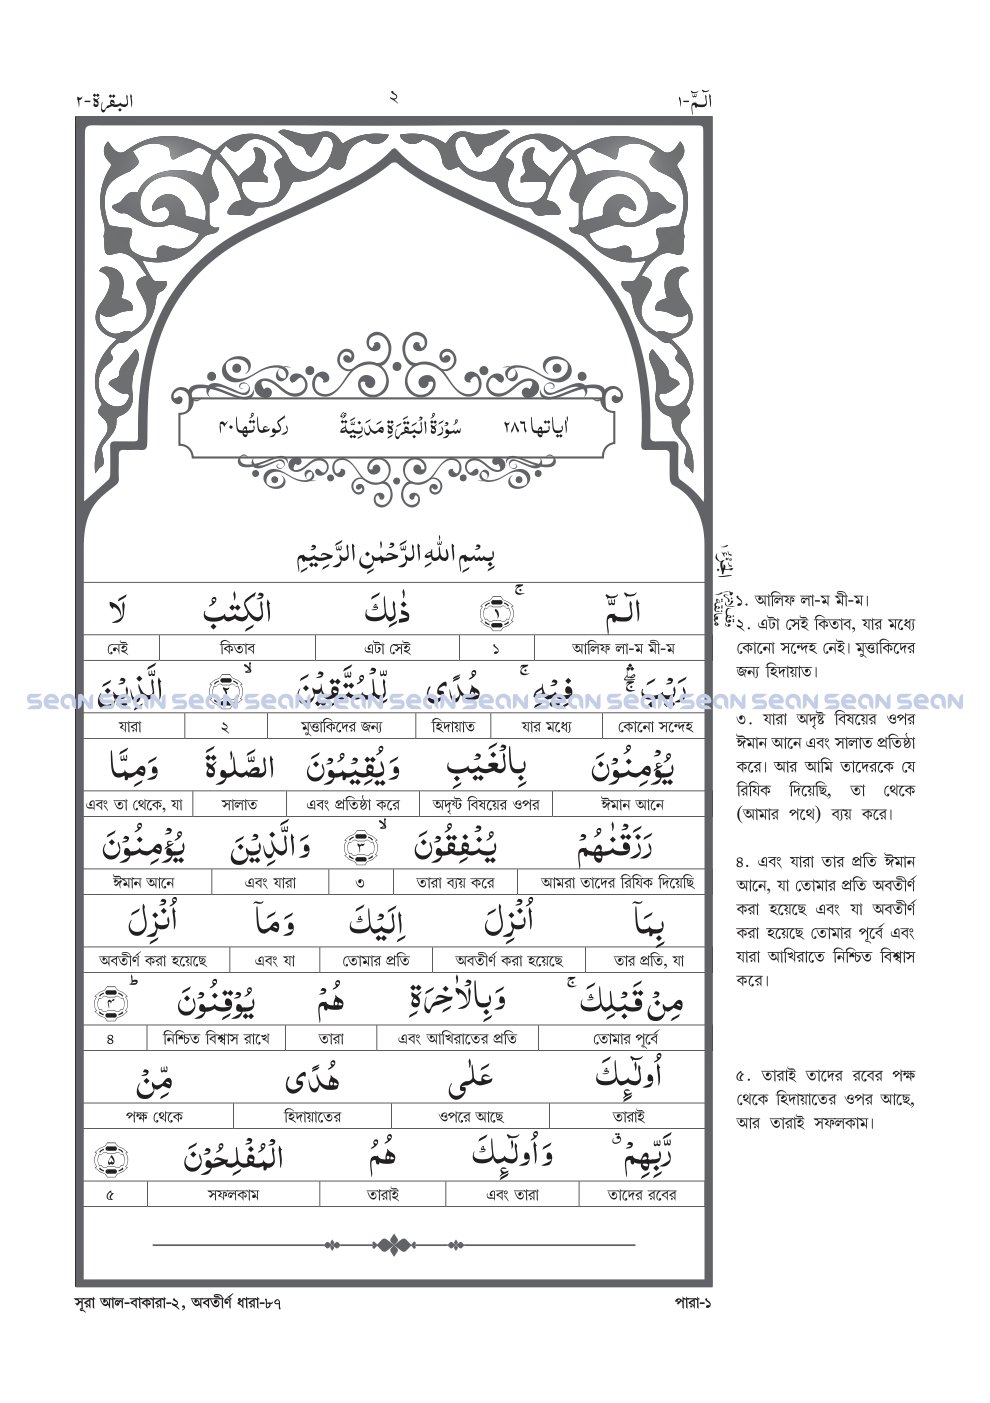 البقرة-٢
٢
الٓمّٓ-١
اٰیاتها ٢٨٦ سُوْرَةُ الْبَقَرَةِ مَدَنِیَّةٌ رکوعاتُها ٤٠
بِسْمِ اللّٰهِ الرَّحْمٰنِ الرَّحِیْمِ
الٓمّٓ ۚ ١ ذٰلِكَ الْكِتٰبُ لَا
নেই কিতাব এটা সেই ১ আলিফ লা-ম মী-ম
رَیْبَ ۛۖۚ فِیْهِ ۚۛ هُدًی لِّلْمُتَّقِیْنَ ۙ ٢ الَّذِیْنَ
যারা ২ মুত্তাকিদের জন্য হিদায়াত যার মধ্যে কোনো সন্দেহ
یُؤْمِنُوْنَ بِالْغَیْبِ وَیُقِیْمُوْنَ الصَّلٰوةَ وَمِمَّا
এবং তা থেকে, যা সালাত এবং প্রতিষ্ঠা করে অদৃষ্ট বিষয়ের ওপর ঈমান আনে
رَزَقْنٰهُمْ یُنْفِقُوْنَ ۙ ٣ وَالَّذِیْنَ یُؤْمِنُوْنَ
ঈমান আনে এবং যারা ৩ তারা ব্যয় করে আমরা তাদের রিযিক দিয়েছি
بِمَاۤ اُنْزِلَ اِلَیْكَ وَمَاۤ اُنْزِلَ
অবতীর্ণ করা হয়েছে এবং যা তোমার প্রতি অবতীর্ণ করা হয়েছে তার প্রতি, যা
مِنْ قَبْلِكَ ۚ وَبِالْاٰخِرَةِ هُمْ یُوْقِنُوْنَ ؕ ٤
৪ নিশ্চিত বিশ্বাস রাখে তারা এবং আখিরাতের প্রতি তোমার পূর্বে
اُولٰٓئِكَ عَلٰی هُدًی مِّنْ
পক্ষ থেকে হিদায়াতের ওপরে আছে তারাই
رَّبِّهِمْ ۗ وَاُولٰٓئِكَ هُمُ الْمُفْلِحُوْنَ ٥
৫ সফলকাম তারাই এবং তারা তাদের রবের
১. আলিফ লা-ম মী-ম।
২. এটা সেই কিতাব, যার মধ্যে
কোনো সন্দেহ নেই। মুত্তাকিদের
জন্য হিদায়াত।
৩. যারা অদৃষ্ট বিষয়ের ওপর
ঈমান আনে এবং সালাত প্রতিষ্ঠা
করে। আর আমি তাদেরকে যে
রিযিক দিয়েছি, তা থেকে
(আমার পথে) ব্যয় করে।
৪. এবং যারা তার প্রতি ঈমান
আনে, যা তোমার প্রতি অবতীর্ণ
করা হয়েছে এবং যা অবতীর্ণ
করা হয়েছে তোমার পূর্বে এবং
যারা আখিরাতে নিশ্চিত বিশ্বাস
করে।
৫. তারাই তাদের রবের পক্ষ
থেকে হিদায়াতের ওপর আছে,
আর তারাই সফলকাম।
sean sean sean sean sean sean sean sean sean sean sean sean sean
সূরা আল-বাকারা-২, অবতীর্ণ ধারা-৮৭
পারা-১